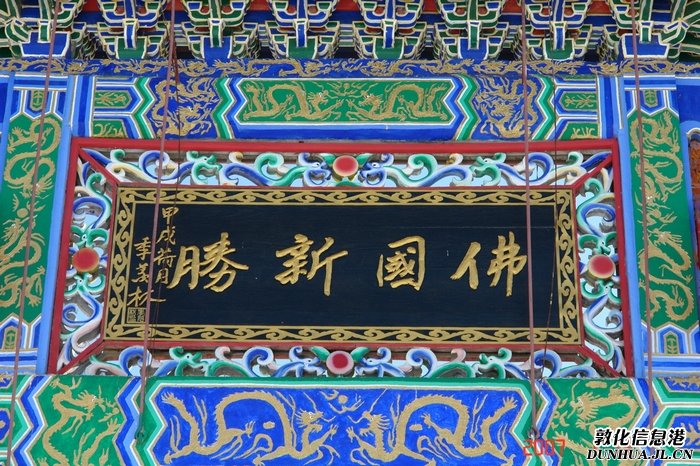 佛國新勝
甲戌荷月
季善松
2007
敦化信息港
DUNHUA.JL.CN